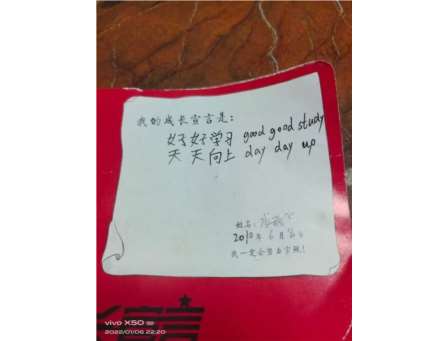 我的成长宣言是：
好好学习 good good study
天天向上 day day up
姓名：
2010年6月 日
我一定会努力实现！
宣言
vivo X50
2022/01/06 22:20